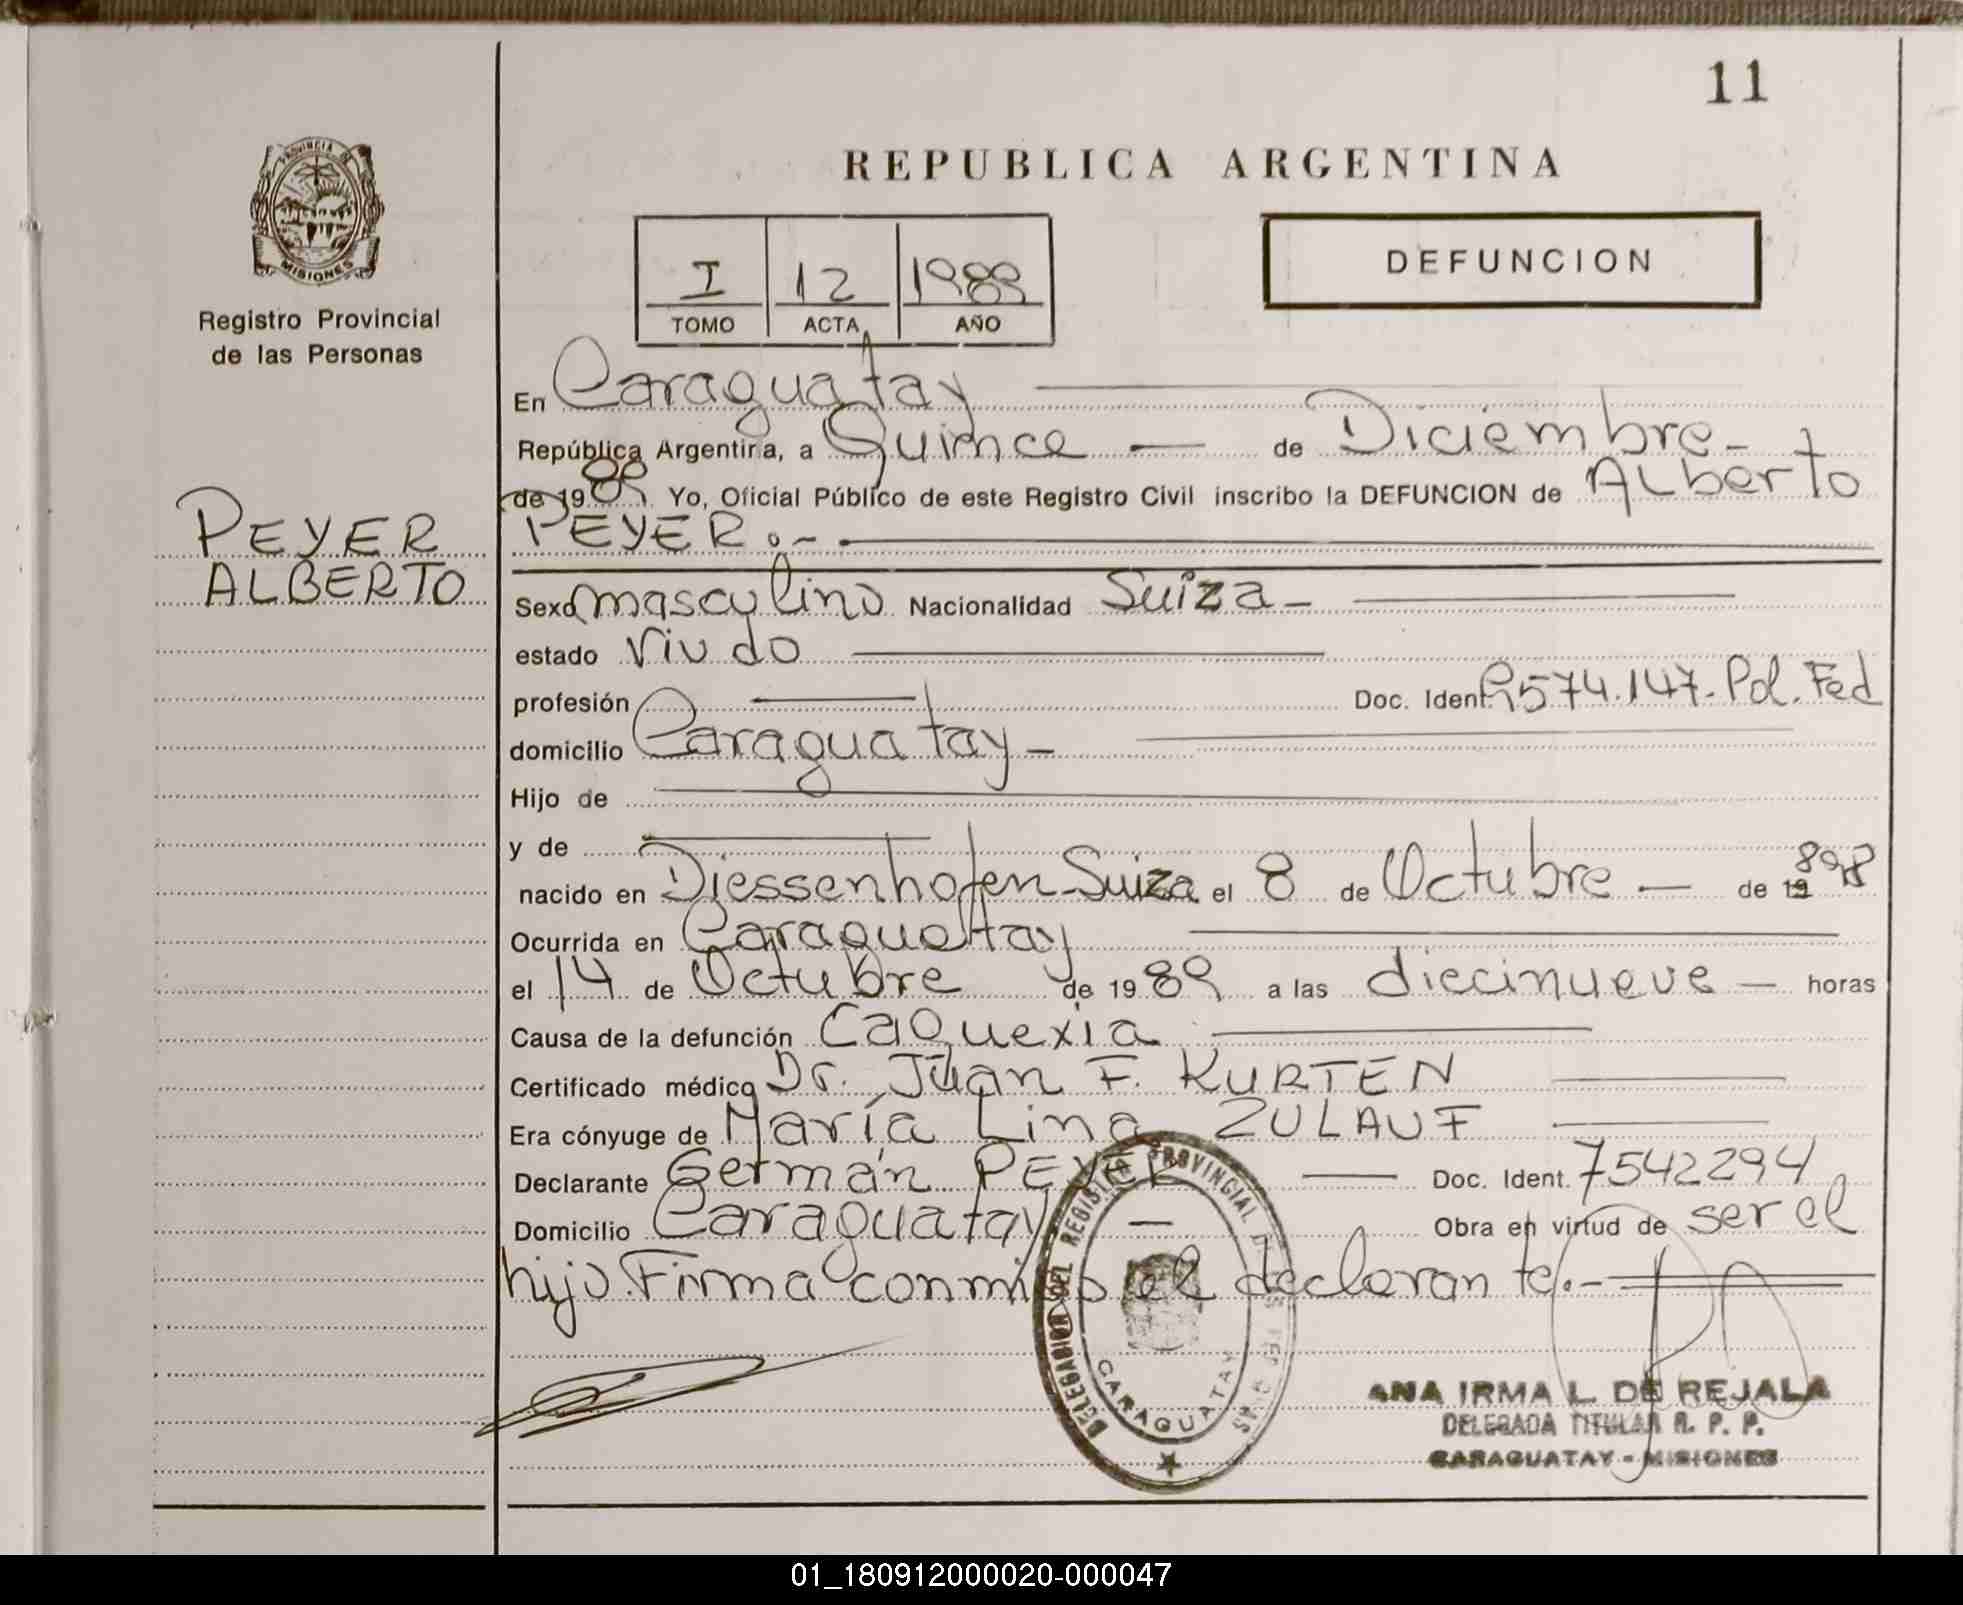 11
PROVINCIA DE
MISIONES
Registro Provincial
de las Personas
REPUBLICA ARGENTINA
I 12 1989
TOMO ACTA AÑO
DEFUNCION
En Caraguatay
República Argentina, a Quince — de Diciembre -
de 1989 Yo, Oficial Público de este Registro Civil inscribo la DEFUNCION de Alberto
PEYER
ALBERTO
PEYER.-
Sexo masculino Nacionalidad Suiza -
estado Viudo
profesión — Doc. Ident. 574.147 - Pol. Fed
domicilio Caraguatay -
Hijo de
y de
nacido en Diessenhofen - Suiza el 8 de Octubre — de 19 898
Ocurrida en Caraguatay
el 14 de Octubre de 1989 a las diecinueve — horas
Causa de la defunción Caquexia
Certificado médico Dr. Juan F. KURTEN
Era cónyuge de María Lina ZULAUF
Declarante Germán PEYER — Doc. Ident. 7542294
Domicilio Caraguatay — Obra en virtud de ser el
hijo. Firma conmigo el declarante.-
DELEGACION DEL REGISTRO PROVINCIAL DE LAS PERSONAS
CARAGUATAY
ANA IRMA L. DE REJALA
DELEGADA TITULAR R. P. P.
CARAGUATAY - MISIONES
01_180912000020-000047